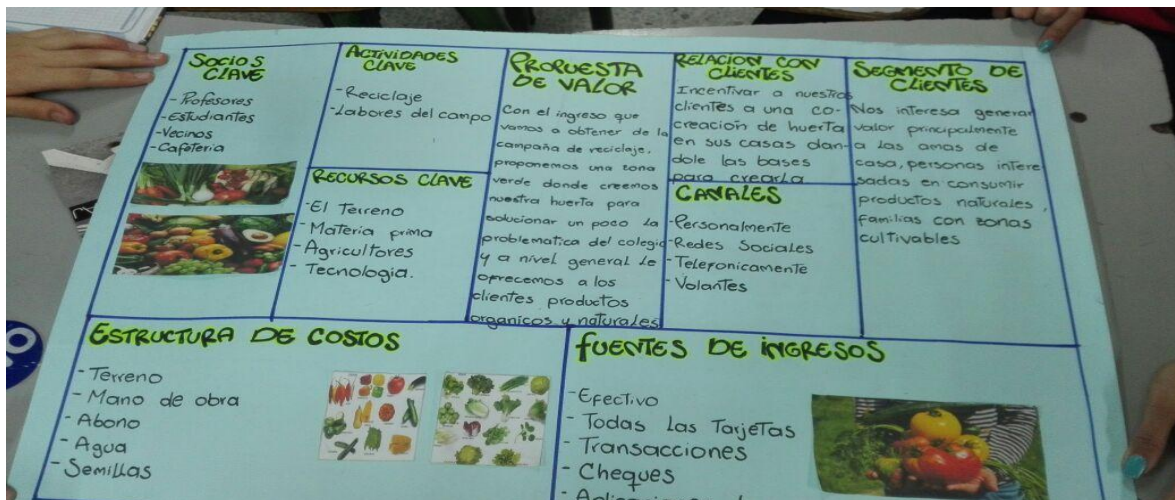 SOCIOS
CLAVE
- Profesores
- Estudiantes
- Vecinos
- Cafeteria
ACTIVIDADES
CLAVE
- Reciclaje
- Labores del campo
RECURSOS CLAVE
- El Terreno
- Materia prima
- Agricultores
- Tecnologia.
PROPUESTA
DE VALOR
Con el ingreso que
vamos a obtener de la
campaña de reciclaje,
proponemos una zona
verde donde creemos
nuestra huerta para
solucionar un poco la
problematica del colegio
y a nivel general le
ofrecemos a los
clientes productos
organicos y naturales
RELACION CON
CLIENTES
Incentivar a nuestros
clientes a una co-
creación de huerta
en sus casas dan-
dole las bases
para crearla
CANALES
- Personalmente
- Redes Sociales
- Telefonicamente
- Volantes
SEGMENTO DE
CLIENTES
Nos interesa generar
valor principalmente
a las amas de
casa, personas intere
sadas en consumir
productos naturales,
familias con zonas
cultivables
ESTRUCTURA DE COSTOS
- Terreno
- Mano de obra
- Abono
- Agua
- Semillas
FUENTES DE INGRESOS
- Efectivo
- Todas Las Tarjetas
- Transacciones
- Cheques